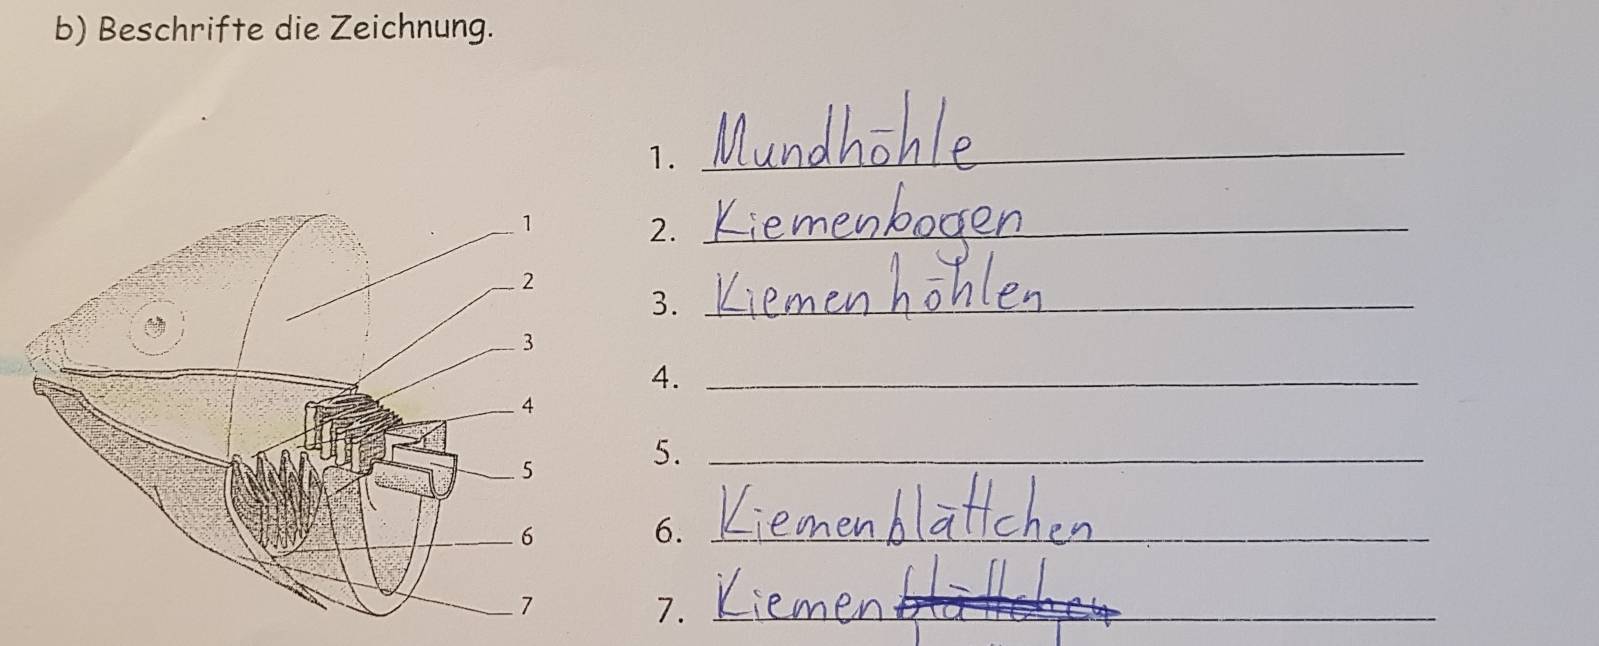 b) Beschrifte die Zeichnung.
1. Mundhöhle
2. Kiemenbogen
3. Kiemenhöhlen
4.
5.
6. Kiemenblättchen
7. Kiemen
1
2
3
4
5
6
7